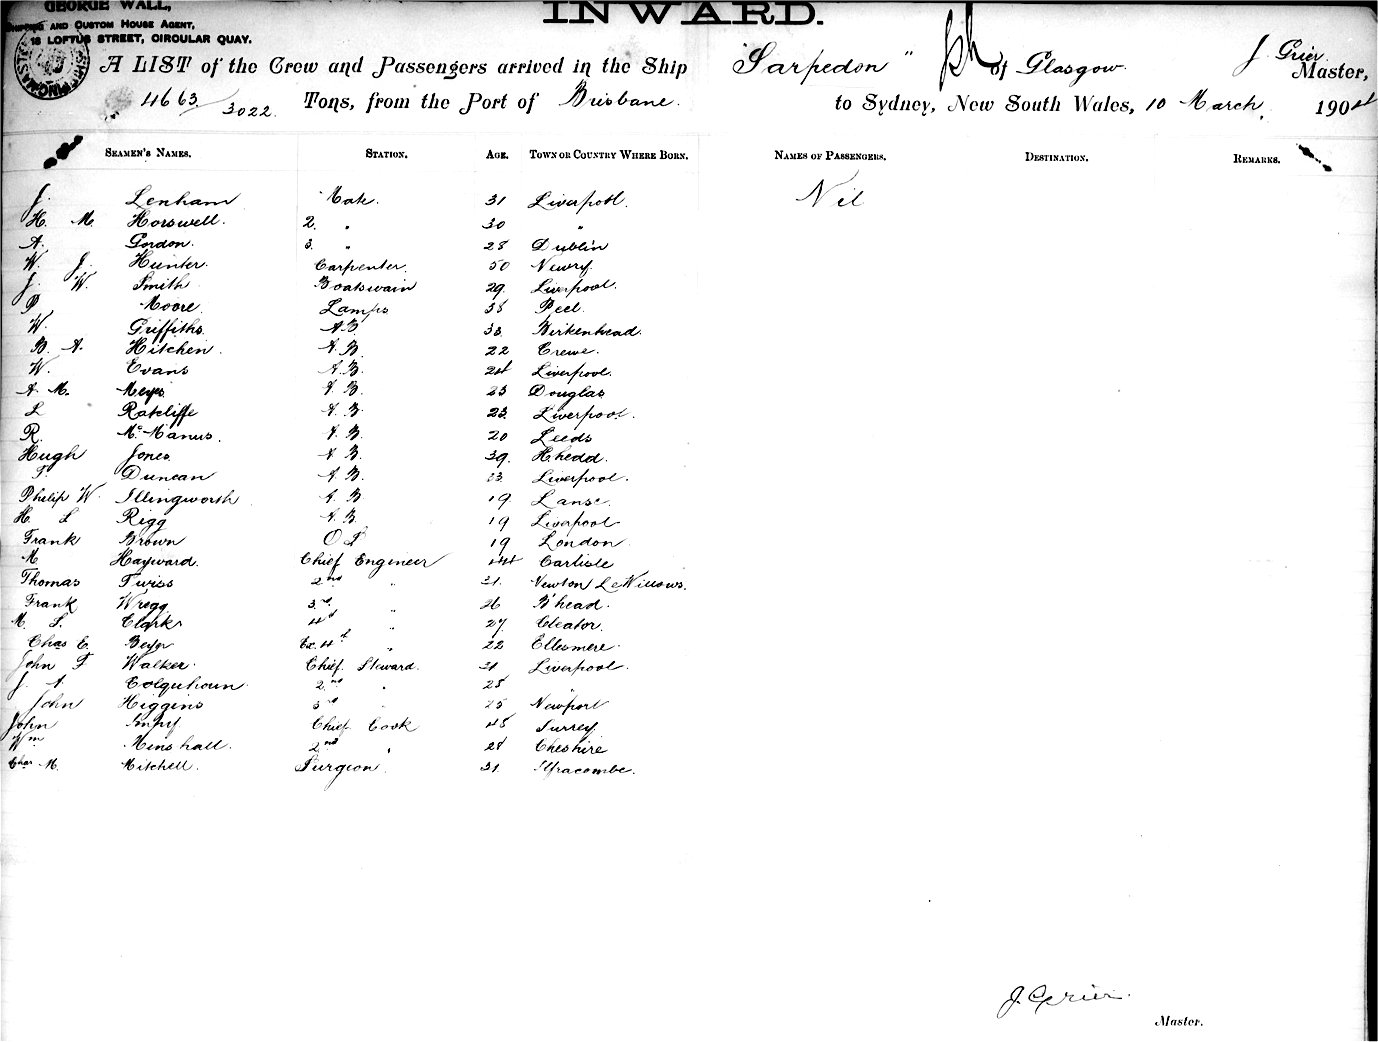 GEORGE WALL,
INWARD.
SHIPPING AND CUSTOM HOUSE AGENT,
18 LOFTUS STREET, CIRCULAR QUAY.
A LIST of the Crew and Passengers arrived in the Ship "Sarpedon" of Glasgow. J. Grier Master,
4663/3022. Tons, from the Port of Brisbane. to Sydney, New South Wales, 10 March, 1904
SEAMEN'S NAMES. STATION. AGE. TOWN OR COUNTRY WHERE BORN. NAMES OF PASSENGERS. DESTINATION. REMARKS.
J. Lenham Mate. 31 Liverpool. Nil
H. M. Horswell. 2. " 30 "
A. Gordon. 3. " 28 Dublin
W. J. Hunter. Carpenter. 50 Newry.
J. W. Smith Boatswain 29. Liverpool.
P Moore Lamps 38 Peel.
W. Griffiths. A.B. 33. Birkenhead.
B. A. Hitchen. A.B. 22 Crewe.
W. Evans A.B. 24 Liverpool.
A. M. A.B. 23 Douglas
L Ratcliffe A.B. 23. Liverpool.
R. McManus. A.B. 20 Leeds
Hugh Jones. A.B. 39. H.hedd.
T. Duncan A.B. 23. Liverpool.
Philip W. Illingworth A.B 19. Lansc.
H. L Rigg A.B. 19 Liverpool
Frank Brown O S 19 London
M Hayward. Chief Engineer 44 Carlisle
Thomas Twiss 2nd " 31. Newton Le Willows.
Frank Wregg 3rd " 26 B'head.
M. S. Clark 4th " 27 Cleator.
Chas E. Ex. 4th " 22 Ellesmere.
John F. Walker. Chief Steward. 31 Liverpool.
J. A. Colquhoun. 2nd " 25 "
John Higgins 3rd " 25 Newport
John Chief Cook 48 Surrey
Wm Minshall. 2nd " 28 Cheshire
Chas M. Mitchell. Surgeon. 31. Ilfracombe.
J. Grier.
Master.